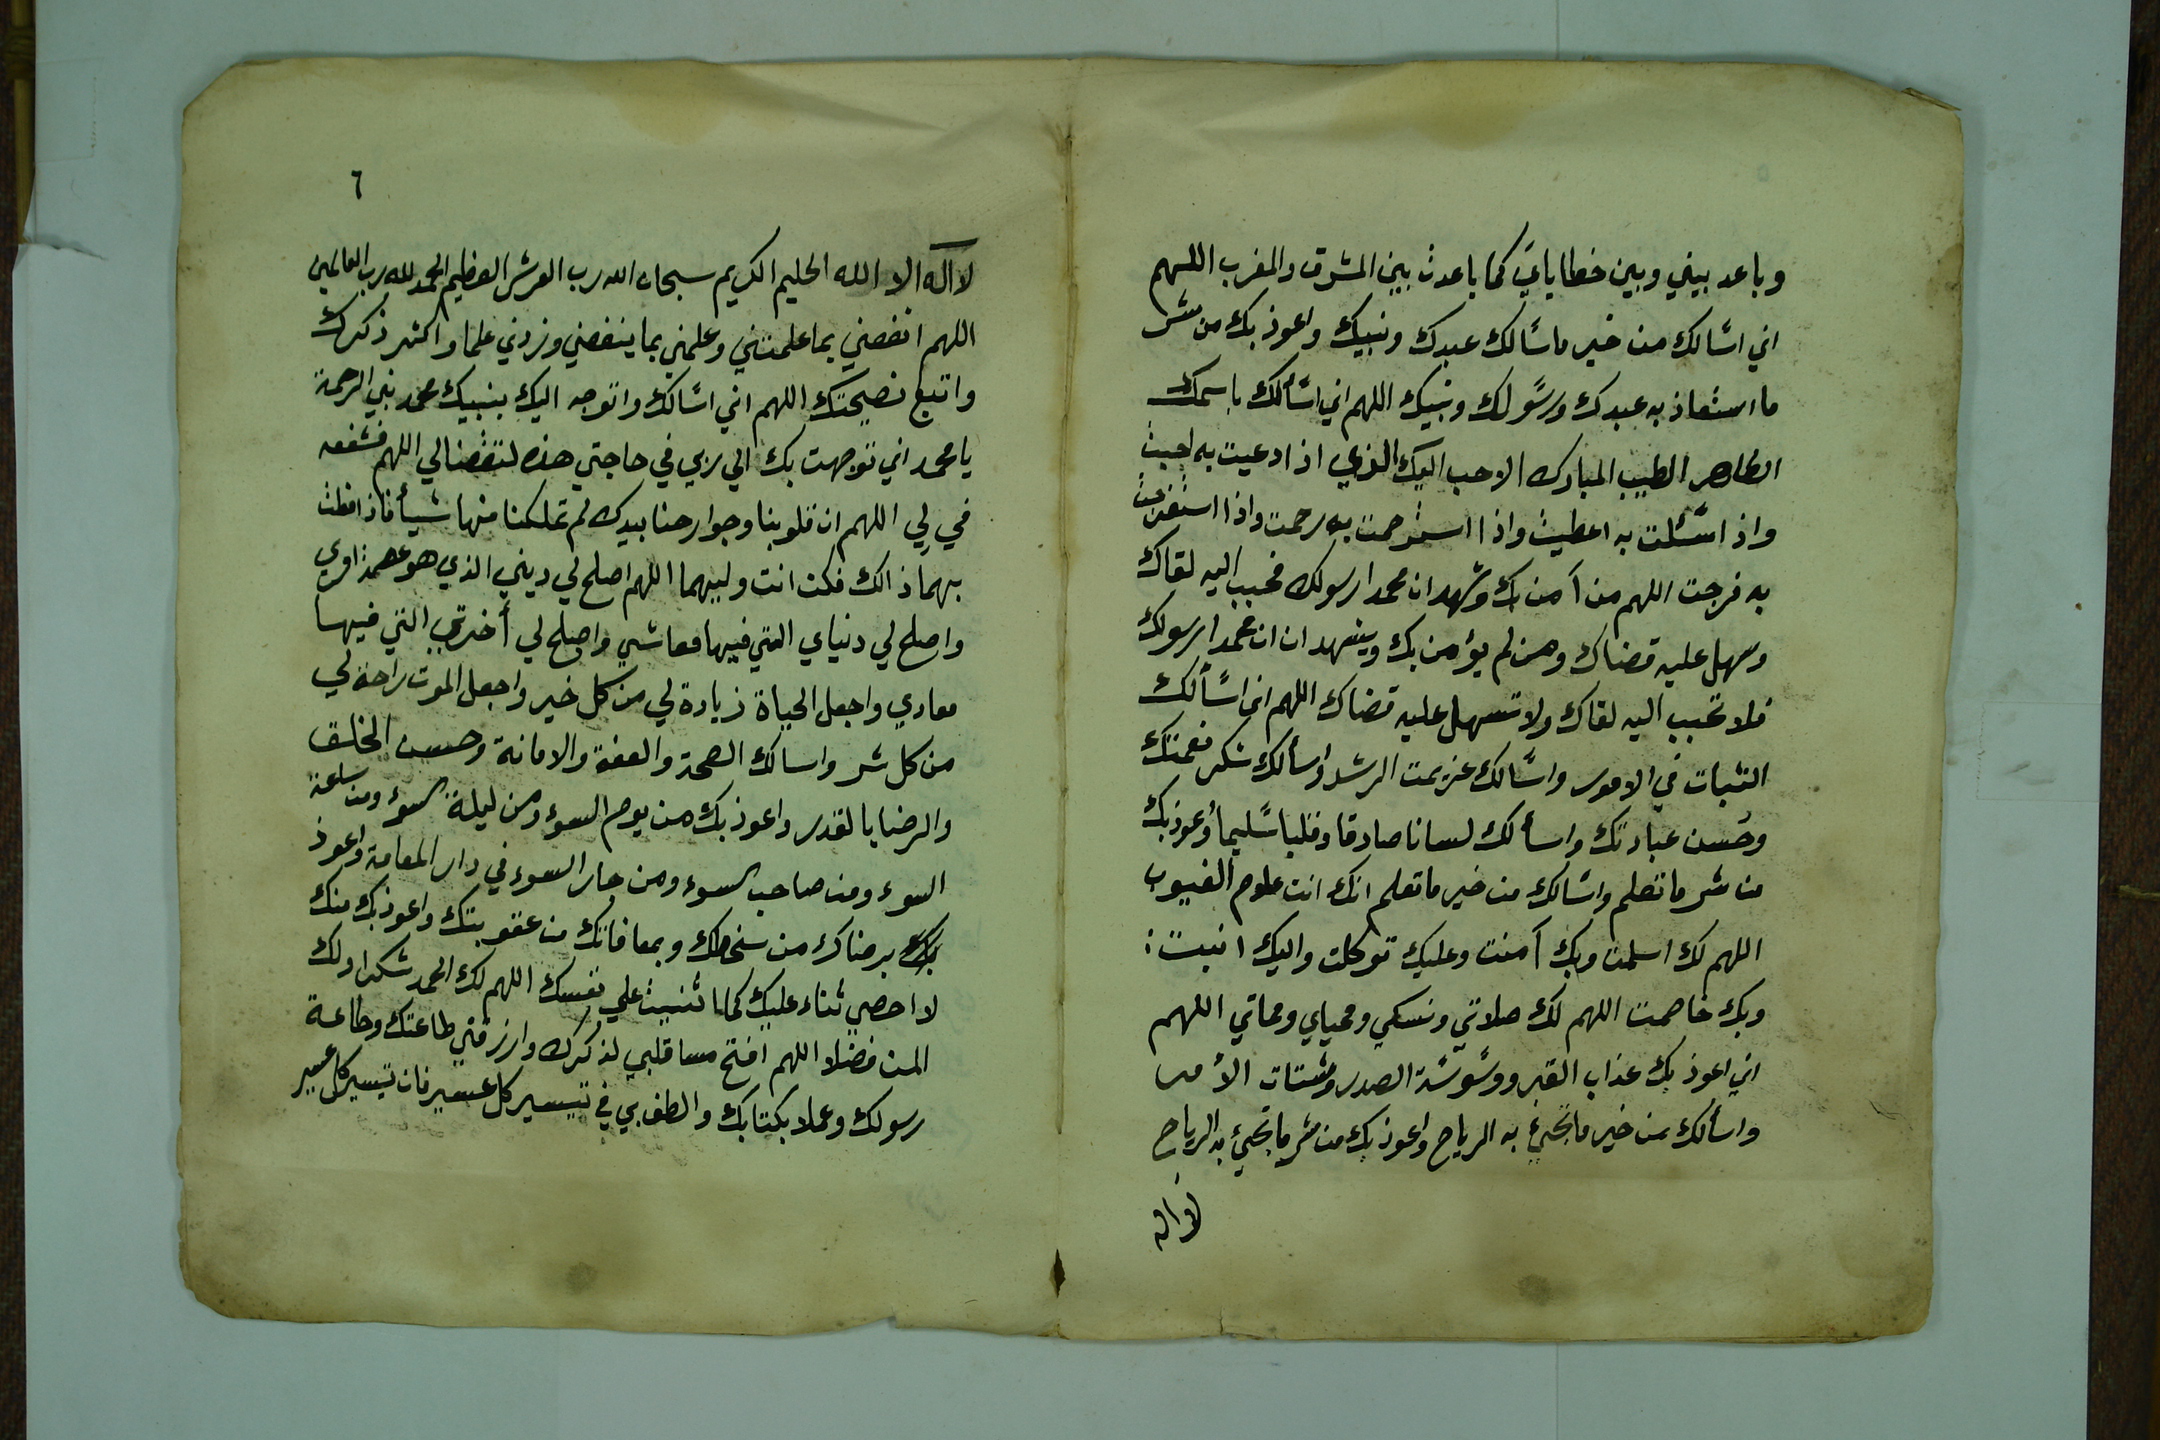 وباعد بيني وبين خطاياي كما باعدت بين المشرق والمغرب اللهم
اني اسالك من خير ما سالك عبدك ونبيك واعوذ بك من شر
ما استعاذ به عبدك ورسولك ونبيك اللهم اني اسألك باسمك
الطاهر الطيب المبارك الاحب اليك الذي اذا دعيت به اجبت
واذ اسئلت به اعطيت واذا استرحمت به رحمت واذا استفرجت
به فرجت اللهم من آمن بك وشهد ان محمدا رسولك فحبب اليه لقاك
وسهل عليه قضاك ومن لم يؤمن بك ويشهد ان ان محمدا رسولك
فلا تحبب اليه لقاك ولا تسهل عليه قضاك اللهم اني اسألك
التثبات في الامور واسالك عزيمت الرشد واسألك شكر نعمتك
وحسن عبادتك واسألك لسانا صادقا وقلبا سليما وأعوذ بك
من شر ما تعلم واسالك من خير ما تعلم انك انت علوم الغيوب
اللهم لك اسلمت وبك آمنت وعليك توكلت واليك انبت :
وبك خاصمت اللهم لك صلاتي ونسكي ومحياي ومماتي اللهم
اني اعوذ بك عذاب القبر ووسوسة الصدر وشتات الأمر
واسألك من خير ما تجئ به الرياح واعوذ بك من شر ما تجئ به الرياح
لا اله
٦
لا اله الا الله الحليم الكريم سبحان الله رب العرش العظيم الحمد لله رب العالمين
اللهم انفعني بما علمتني وعلمني بما ينفعني وزدني علما واكثر ذكرك
واتبع نصيحتك اللهم اني اسالك واتوجه اليك بنبيك محمد نبي الرحمة
يا محمد اني توجهت بك الي ربي في حاجتي هذه لتقضا لي اللهم فشفعه
في لي اللهم ان قلوبنا وجوارحنا بيدك لم تملكنا منها شيأ فاذا فعلت
بهما ذالك فكن انت وليهما اللهم اصلح لي ديني الذي هو عصمة امري
واصلح لي دنياي التي فيها معاشي واصلح لي أخرتي التي فيها
معادي واجعل الحياة زيادة لي من كل خير واجعل الموت راحة لي
من كل شر واسالك الصحة والعفة والامانة وحسن الخلق
والرضا بالقدر واعوذ بك من يوم السوء ومن ليلة السوء ومن ساعة
السوء ومن صاحب السوء ومن جار السوء في دار المقامة واعوذ
بك برضاك من سخطك وبمعافاتك من عقوبتك واعوذ بك منك
لا احصي ثناء عليك كما اثنيت علي نفسك اللهم لك الحمد شكرا ولك
المن فضلا اللهم افتح مسا قلبي لذكرك وارزقني طاعتك وطاعة
رسولك وعملا بكتابك والطف بي في تيسير كل عسير فان تيسير كل عسير